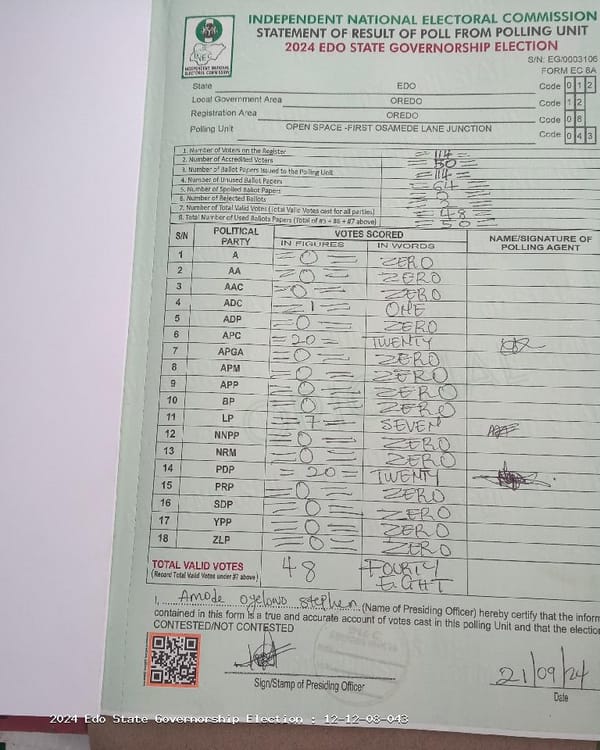 INDEPENDENT NATIONAL ELECTORAL COMMISSION
STATEMENT OF RESULT OF POLL FROM POLLING UNIT
2024 EDO STATE GOVERNORSHIP ELECTION
INEC
INDEPENDENT NATIONAL ELECTORAL COMMISSION
S/N: EG/0003106
FORM EC 8A
State EDO Code 0 1 2
Local Government Area OREDO Code 1 2
Registration Area OREDO Code 0 8
Polling Unit OPEN SPACE -FIRST OSAMEDE LANE JUNCTION Code 0 4 3
1. Number of Voters on the Register = 114 =
2. Number of Accredited Voters = 50 =
3. Number of Ballot Papers Issued to the Polling Unit = 114 =
4. Number of Unused Ballot Papers = 64 =
5. Number of Spoiled Ballot Papers
6. Number of Rejected Ballots
7. Number of Total Valid Votes (Total Valid Votes cast for all parties) = 48 =
8. Total Number of Used Ballots Papers (Total of #5 + #6 + #7 above) = 50 =
S/N POLITICAL PARTY VOTES SCORED NAME/SIGNATURE OF POLLING AGENT
IN FIGURES IN WORDS
1 A = 0 = ZERO
2 AA = 0 = ZERO
3 AAC = 0 = ZERO
4 ADC = 1 = ONE
5 ADP = 0 = ZERO
6 APC = 20 = TWENTY
7 APGA = 0 = ZERO
8 APM = 0 = ZERO
9 APP = 0 = ZERO
10 BP = 0 = ZERO
11 LP = 7 = SEVEN
12 NNPP = 0 = ZERO
13 NRM = 0 = ZERO
14 PDP = 20 = TWENTY
15 PRP = 0 = ZERO
16 SDP = 0 = ZERO
17 YPP = 0 = ZERO
18 ZLP = 0 = ZERO
TOTAL VALID VOTES 48 FOURTY EIGHT
(Record Total Valid Votes under #7 above)
I, Amode Oyelowo Stephen (Name of Presiding Officer) hereby certify that the inform
contained in this form is a true and accurate account of votes cast in this polling Unit and that the electio
CONTESTED/NOT CONTESTED
21/09/24
Sign/Stamp of Presiding Officer Date
2024 Edo State Governorship Election : 12-12-08-043